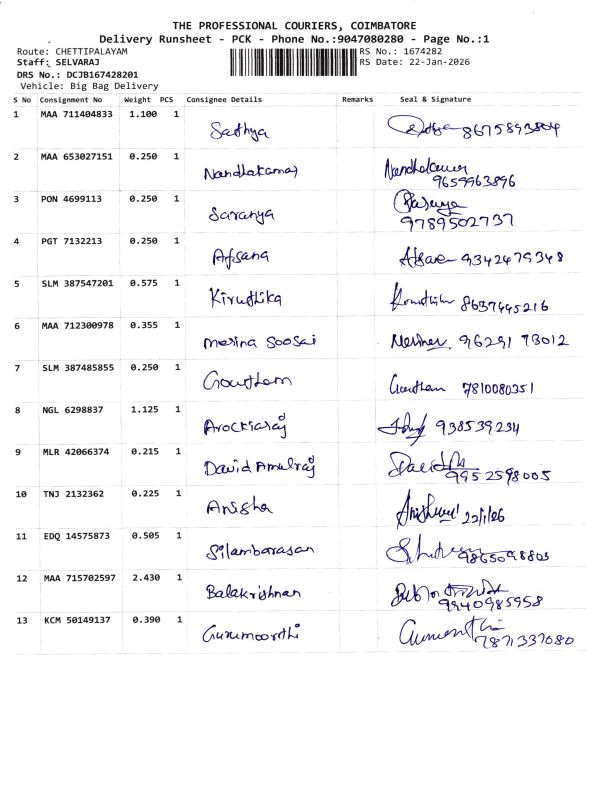 THE PROFESSIONAL COURIERS, COIMBATORE
Delivery Runsheet - PCK - Phone No.:9047080280 - Page No.:1
Route: CHETTIPALAYAM RS No.: 1674282
Staff: SELVARAJ RS Date: 22-Jan-2026
DRS No.: DCJB167428201
Vehicle: Big Bag Delivery
S No Consignment No Weight PCS Consignee Details Remarks Seal & Signature
1 MAA 711404833 1.100 1 Sathya 8675893804
2 MAA 653027151 0.250 1 Nandhakumar Nandhakumar
9659963896
3 PON 4699113 0.250 1 Saranya
9789502737
4 PGT 7132213 0.250 1 Afsana 9342479348
5 SLM 387547201 0.575 1 Kiruthika 8637445216
6 MAA 712300978 0.355 1 Mesina Soosai 96291 73012
7 SLM 387485855 0.250 1 Gowtham Gowtham 7810080351
8 NGL 6298837 1.125 1 Arockiaraj 938539234
9 MLR 42066374 0.215 1 David Amulraj
9952598005
10 TNJ 2132362 0.225 1 Anisha 22/1/26
11 EDQ 14575873 0.505 1 Silambarasan 9865098803
12 MAA 715702597 2.430 1 Balakrishnan
9940985958
13 KCM 50149137 0.390 1 Gurumoorthi
7871337080